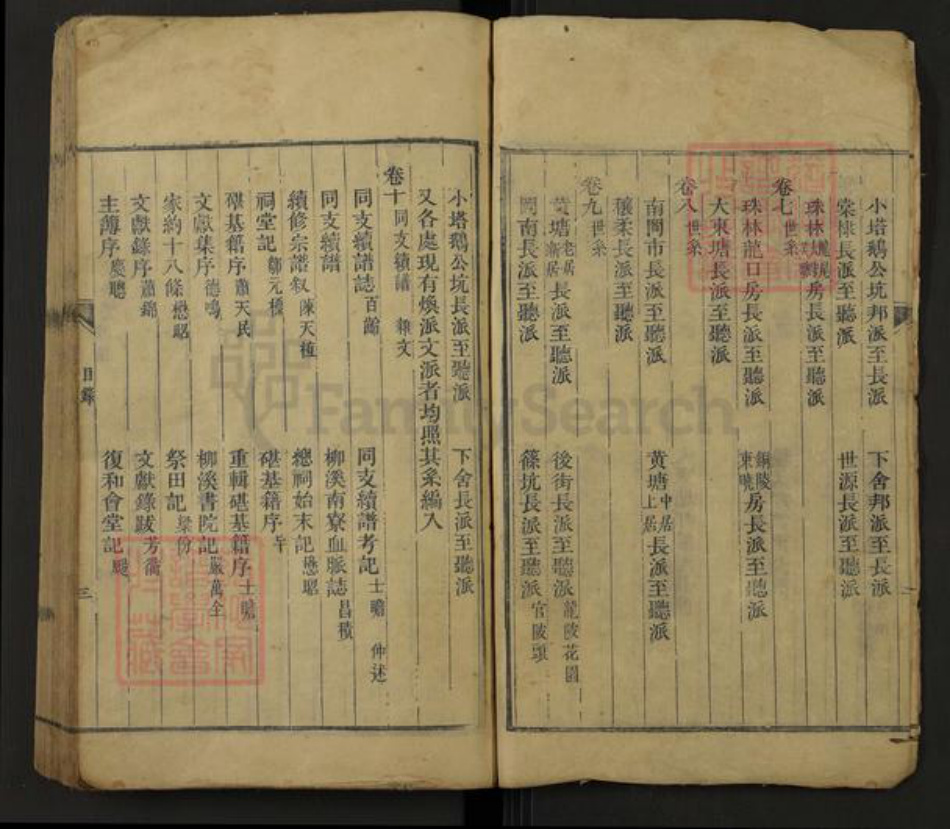 小塔鵝公坑邦派至長派　下舍邦派至長派
棠棣長派至聽派　世源長派至聽派
珠林房長派至聽派
卷七世系
珠林龍口房長派至聽派　銅陵東曉房長派至聽派
大東塘長派至聽派
卷八世系
南閣市長派至聽派　黄塘中居上居長派至聽派
穰柔長派至聽派
卷九世系
黄塘老居新居長派至聽派　後街長派至聽派龍陂花園
南長派至聽派　篠坑長派至聽派官陂頭
小塔鵝公坑長派至聽派　下舍長派至聽派
又各處現有煥派文派者均照其系編入
卷十同支續譜　雜文
同支續譜誌百齡　同支續譜考記士瞻　仲述
同支續譜　柳溪南寮血脈誌昌積
續修宗譜叙陳天植　總祠始末記懋昭
祠堂記鄭元橋　碪基籍序
碪基籍序蕭天民　重輯碪基籍序士瞻
文獻集序德鳴　柳溪書院記嚴萬全
家約十八條懋昭　祭田記棨份
文獻錄序蕭錦　文獻錄跋芳衢
主簿序慶聰　復和會堂記
目錄
三
FamilySearch